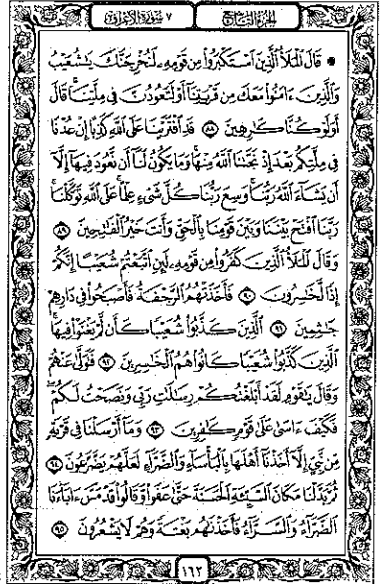 الجزء التاسع ٧ سورة الأعراف
۞ قَالَ ٱلْمَلَأُ ٱلَّذِينَ ٱسْتَكْبَرُوا۟ مِن قَوْمِهِۦ لَنُخْرِجَنَّكَ يَٰشُعَيْبُ
وَٱلَّذِينَ ءَامَنُوا۟ مَعَكَ مِن قَرْيَتِنَآ أَوْ لَتَعُودُنَّ فِى مِلَّتِنَا ۚ قَالَ
أَوَلَوْ كُنَّا كَٰرِهِينَ ٨٨ قَدِ ٱفْتَرَيْنَا عَلَى ٱللَّهِ كَذِبًا إِنْ عُدْنَا
فِى مِلَّتِكُم بَعْدَ إِذْ نَجَّىٰنَا ٱللَّهُ مِنْهَا ۚ وَمَا يَكُونُ لَنَآ أَن نَّعُودَ فِيهَآ إِلَّآ
أَن يَشَآءَ ٱللَّهُ رَبُّنَا ۚ وَسِعَ رَبُّنَا كُلَّ شَىْءٍ عِلْمًا ۚ عَلَى ٱللَّهِ تَوَكَّلْنَا ۚ
رَبَّنَا ٱفْتَحْ بَيْنَنَا وَبَيْنَ قَوْمِنَا بِٱلْحَقِّ وَأَنتَ خَيْرُ ٱلْفَٰتِحِينَ ٨٩
وَقَالَ ٱلْمَلَأُ ٱلَّذِينَ كَفَرُوا۟ مِن قَوْمِهِۦ لَئِنِ ٱتَّبَعْتُمْ شُعَيْبًا إِنَّكُمْ
إِذًا لَّخَٰسِرُونَ ٩٠ فَأَخَذَتْهُمُ ٱلرَّجْفَةُ فَأَصْبَحُوا۟ فِى دَارِهِمْ
جَٰثِمِينَ ٩١ ٱلَّذِينَ كَذَّبُوا۟ شُعَيْبًا كَأَن لَّمْ يَغْنَوْا۟ فِيهَا ۚ
ٱلَّذِينَ كَذَّبُوا۟ شُعَيْبًا كَانُوا۟ هُمُ ٱلْخَٰسِرِينَ ٩٢ فَتَوَلَّىٰ عَنْهُمْ
وَقَالَ يَٰقَوْمِ لَقَدْ أَبْلَغْتُكُمْ رِسَٰلَٰتِ رَبِّى وَنَصَحْتُ لَكُمْ ۖ
فَكَيْفَ ءَاسَىٰ عَلَىٰ قَوْمٍ كَٰفِرِينَ ٩٣ وَمَآ أَرْسَلْنَا فِى قَرْيَةٍ
مِّن نَّبِىٍّ إِلَّآ أَخَذْنَآ أَهْلَهَا بِٱلْبَأْسَآءِ وَٱلضَّرَّآءِ لَعَلَّهُمْ يَضَّرَّعُونَ ٩٤
ثُمَّ بَدَّلْنَا مَكَانَ ٱلسَّيِّئَةِ ٱلْحَسَنَةَ حَتَّىٰ عَفَوا۟ وَّقَالُوا۟ قَدْ مَسَّ ءَابَآءَنَا
ٱلضَّرَّآءُ وَٱلسَّرَّآءُ فَأَخَذْنَٰهُم بَغْتَةً وَهُمْ لَا يَشْعُرُونَ ٩٥
١٦٢